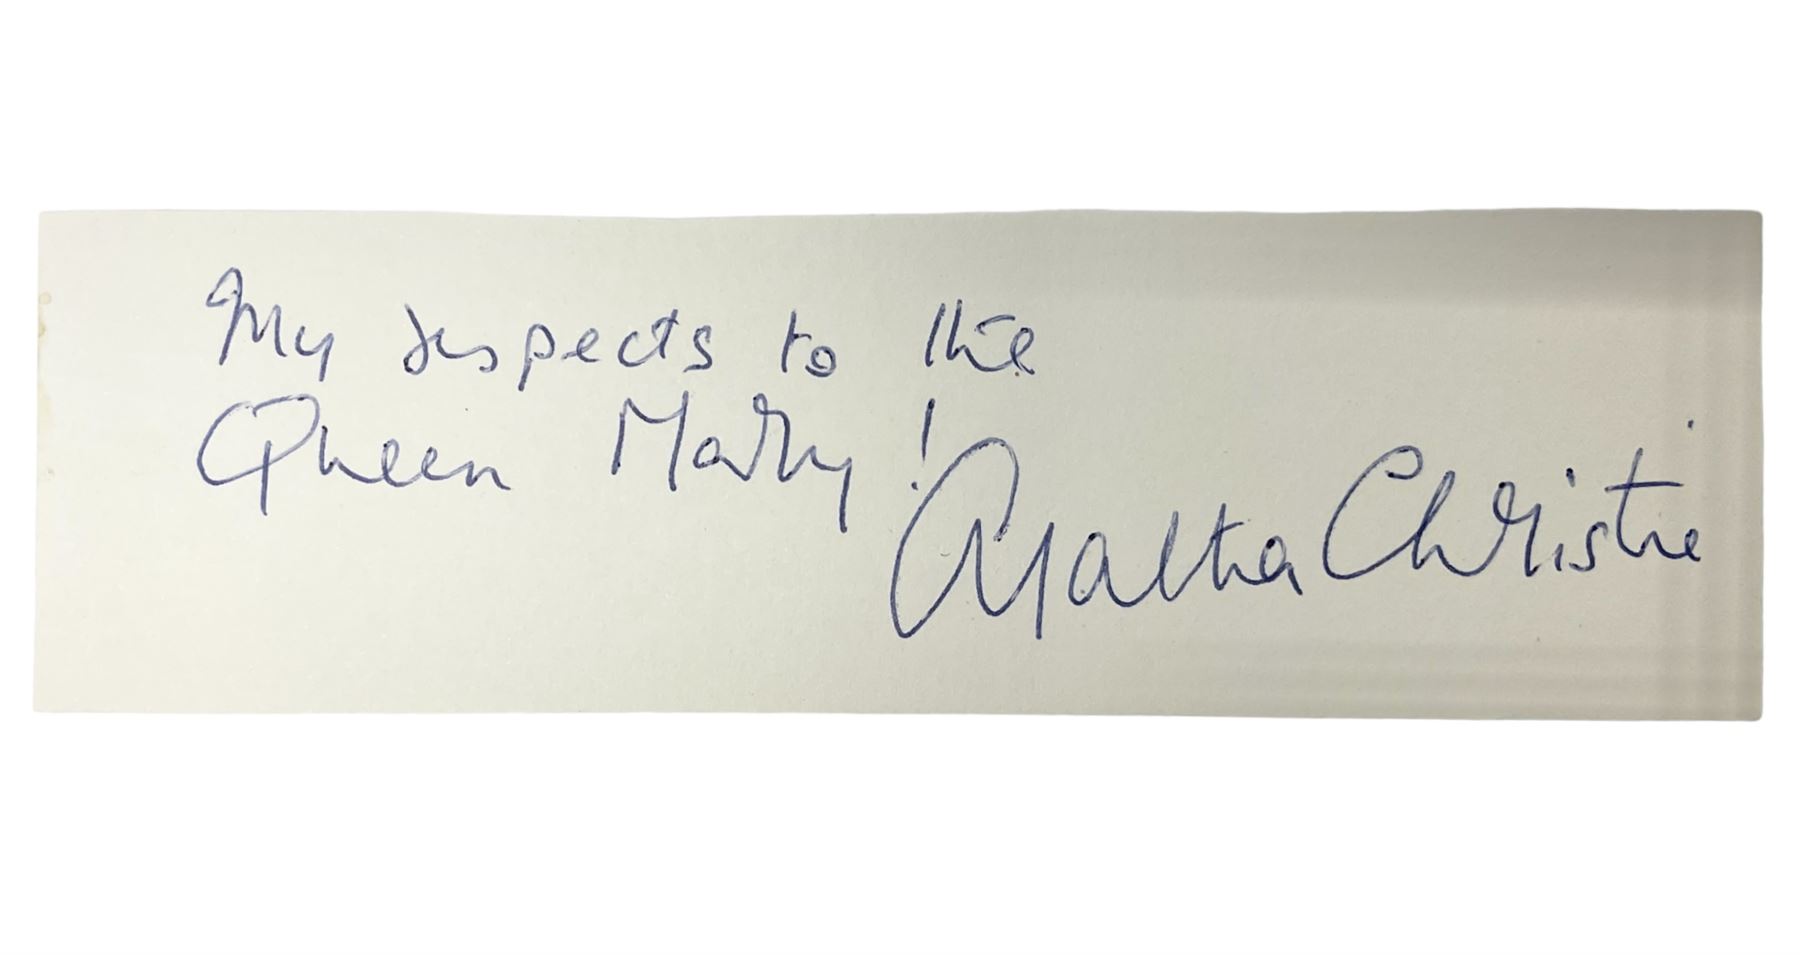 My respects to the
Queen Mary!
Agatha Christie